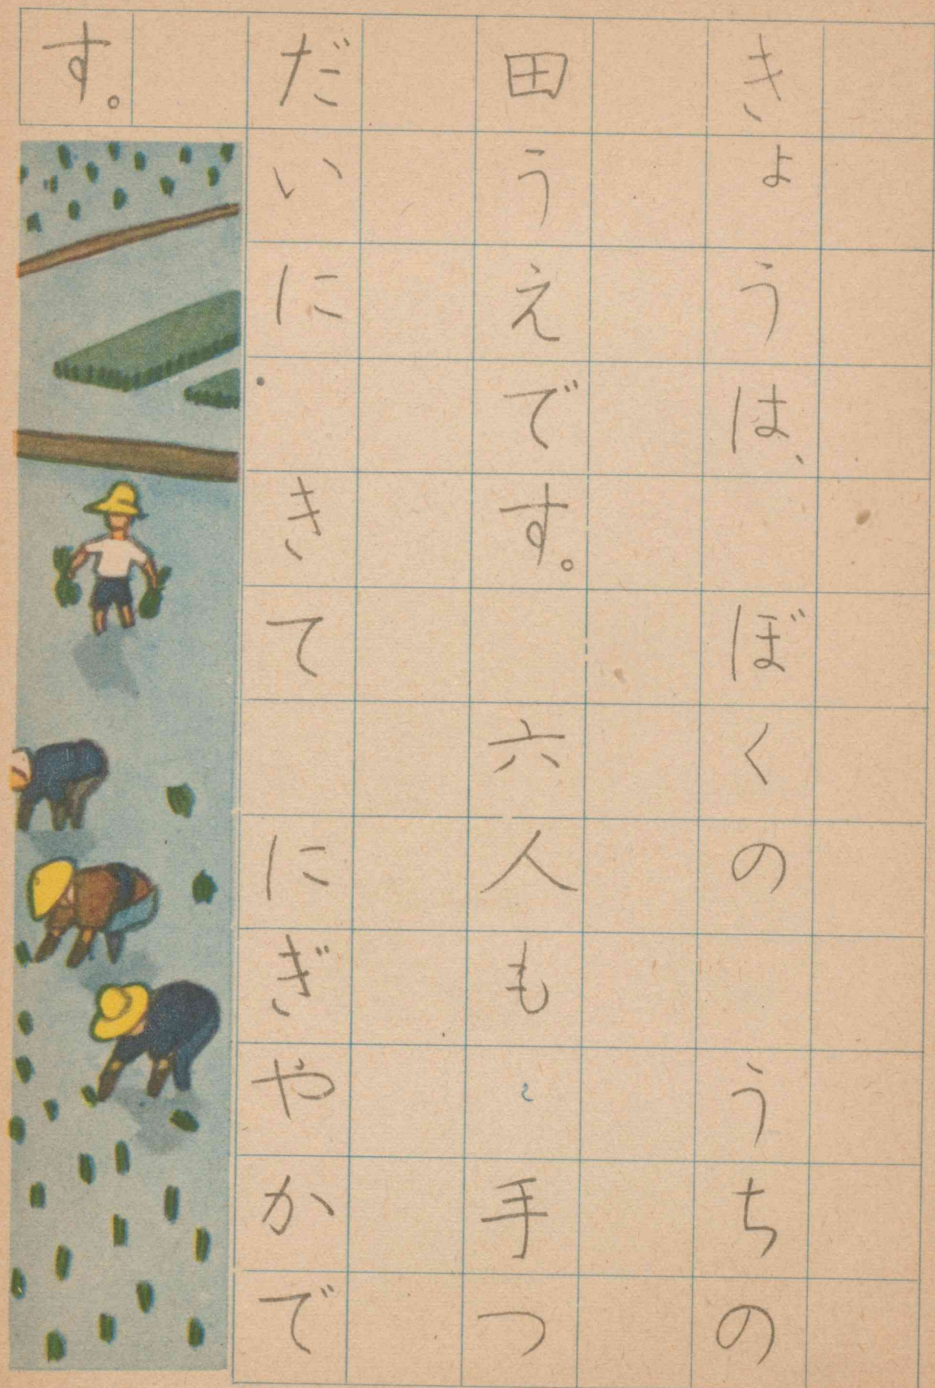 きょうは、 ぼくの うちの
田うえです。 六人も 手つ
だいに きて にぎやかで
す。